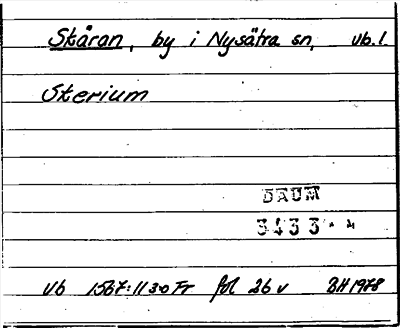 Skåran, by i Nysätra sn, vb.l.
Sterium
DAUM
3433
Vb 1567:11 30 Fr fol 26 v BH 1978